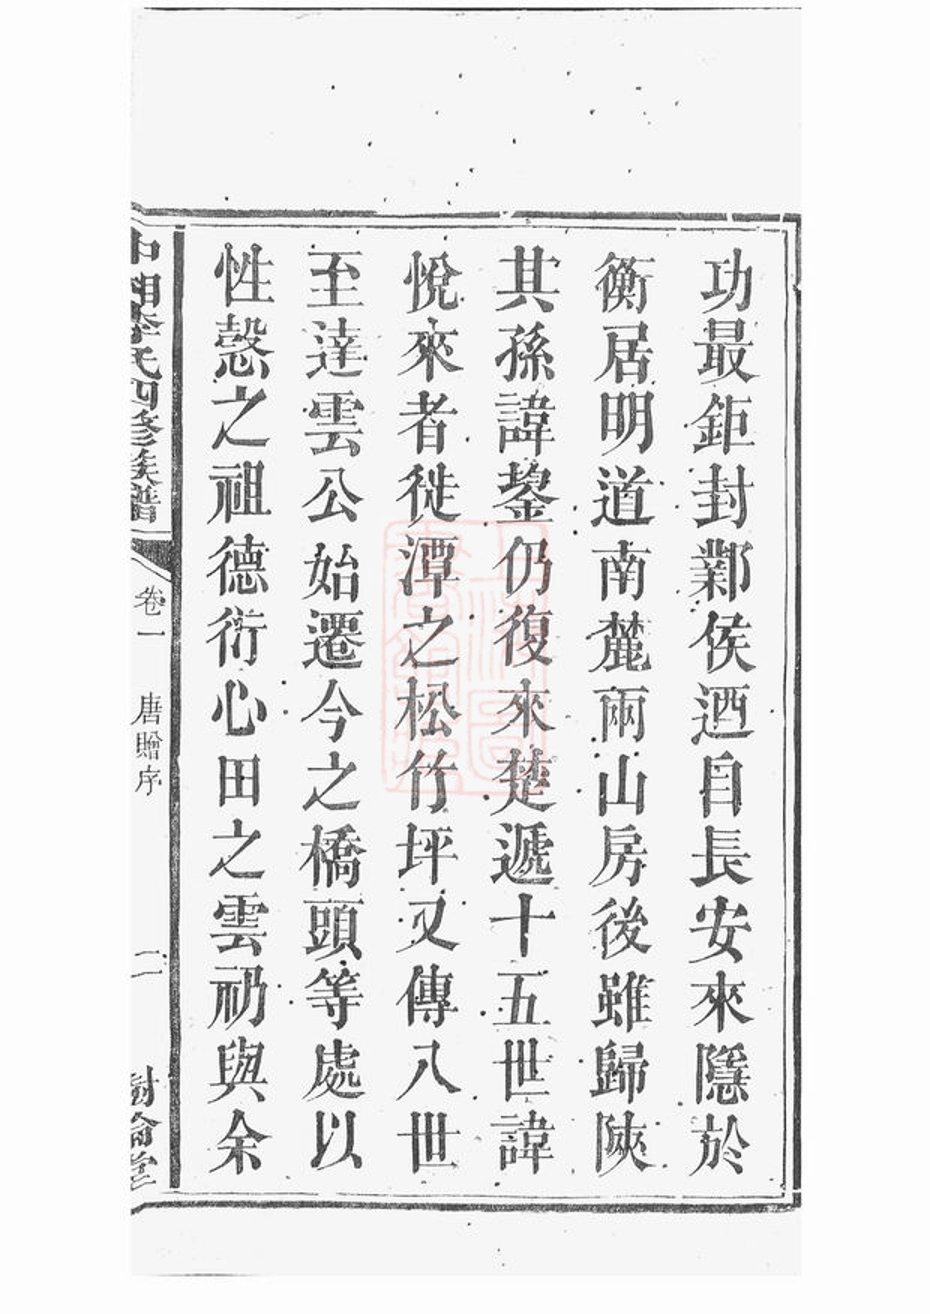 功最鉅封鄴侯迺自長安來隱於
衡居明道南麓兩山房後雖歸陝
其孫諱鋆仍復來楚遞十五世諱
悅來者徙潭之松竹坪又傳八世
至達雲公始遷今之橋頭等處以
性慤之祖德衍心田之雲礽與余
中湘李氏四修族譜
卷一
唐贈序
二